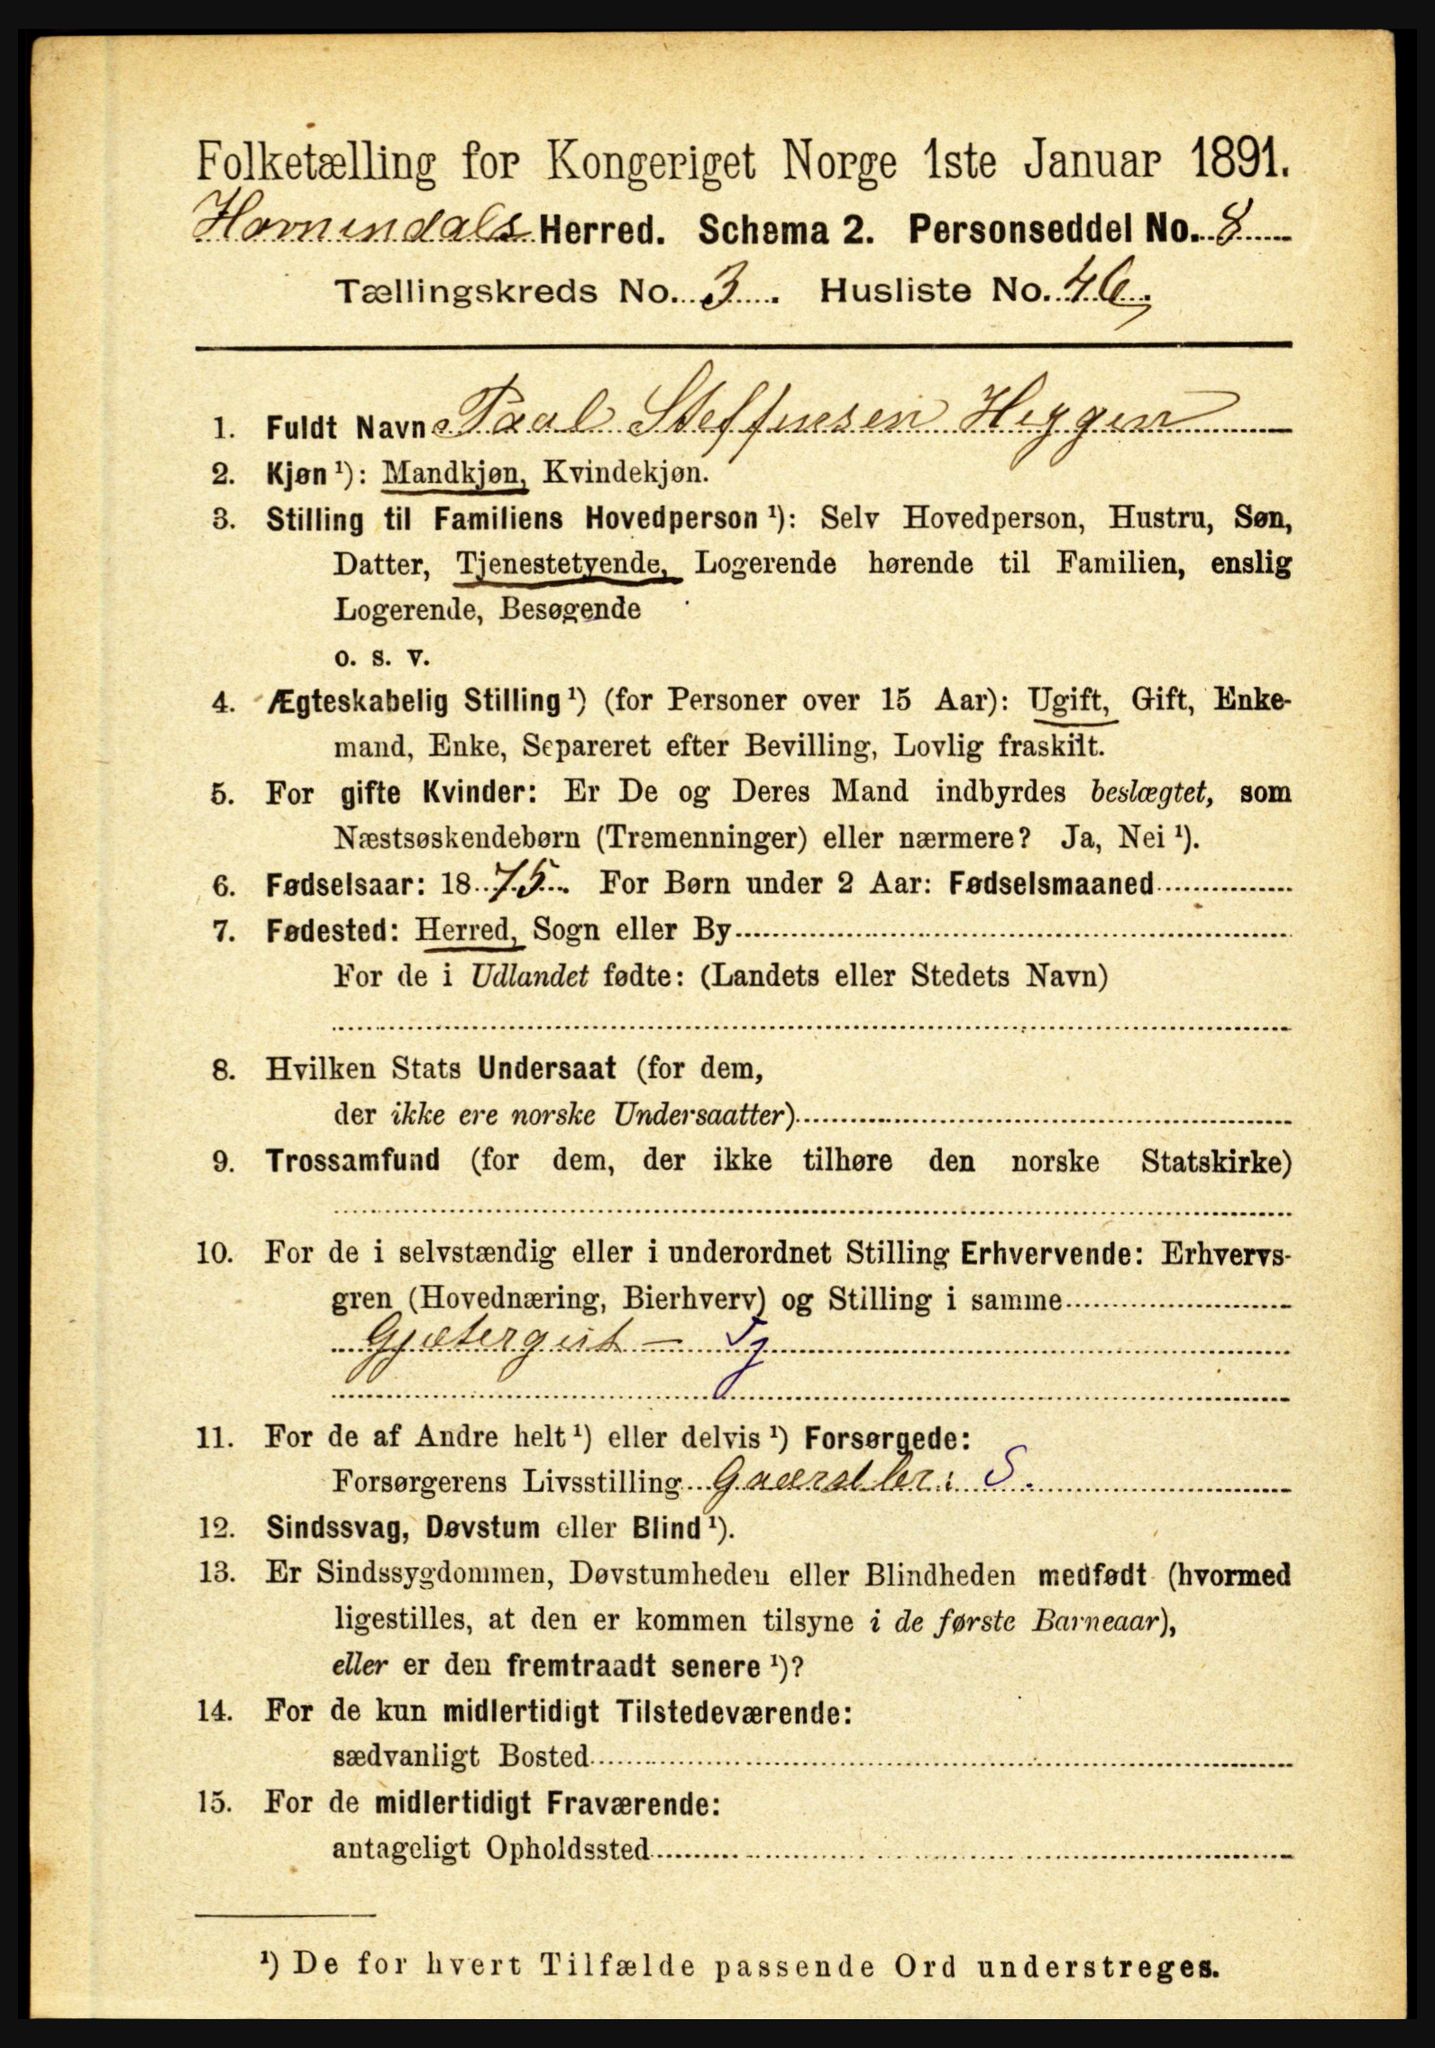 Folketælling for Kongeriget Norge 1ste Januar 1891.
Hornindals Herred. Schema 2. Personseddel No. 8
Tællingskreds No. 3. Husliste No. 46.
1. Fuldt Navn Paal Steffensen Heggen
2. Kjøn ¹): Mandkjøn, Kvindekjøn.
3. Stilling til Familiens Hovedperson ¹): Selv Hovedperson, Hustru, Søn,
Datter, Tjenestetyende, Logerende hørende til Familien, enslig
Logerende, Besøgende
o. s. v.
4. Ægteskabelig Stilling ¹) (for Personer over 15 Aar): Ugift, Gift, Enke-
mand, Enke, Separeret efter Bevilling, Lovlig fraskilt.
5. For gifte Kvinder: Er De og Deres Mand indbyrdes beslægtet, som
Næstsøskendebørn (Tremenninger) eller nærmere? Ja, Nei ¹).
6. Fødselsaar: 1875. For Børn under 2 Aar: Fødselsmaaned
7. Fødested: Herred, Sogn eller By
For de i Udlandet fødte: (Landets eller Stedets Navn)
8. Hvilken Stats Undersaat (for dem,
der ikke ere norske Undersaatter)
9. Trossamfund (for dem, der ikke tilhøre den norske Statskirke)
10. For de i selvstændig eller i underordnet Stilling Erhvervende: Erhvervs-
gren (Hovednæring, Bierhverv) og Stilling i samme
Gjætergut – Tj
11. For de af Andre helt ¹) eller delvis ¹) Forsørgede:
Forsørgerens Livsstilling S.
12. Sindssvag, Døvstum eller Blind ¹).
13. Er Sindssygdommen, Døvstumheden eller Blindheden medfødt (hvormed
ligestilles, at den er kommen tilsyne i de første Barneaar),
eller er den fremtraadt senere ¹)?
14. For de kun midlertidigt Tilstedeværende:
sædvanligt Bosted
15. For de midlertidigt Fraværende:
antageligt Opholdssted
¹) De for hvert Tilfælde passende Ord understreges.